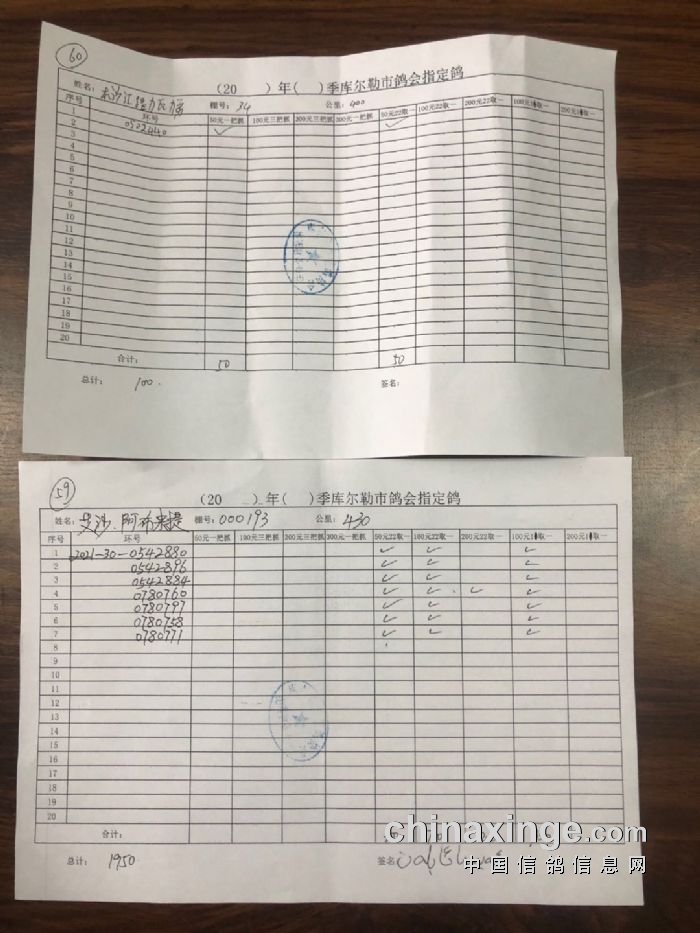 60
(20 ) 年( )季库尔勒市鸽会指定鸽
姓名: 棚号: 34 公里: 400
序号 环号 50元一把抓 100元三把抓 200元三把抓 300元一把抓 50元22取一 100元22取一 200元22取一 100元1取一 200元1取一
1 0502440 ✓ ✓
2
3
4
5
6
7
8
9
10
11
12
13
14
15
16
17
18
19
20
合计: 50 50
总计: 100. 签名:
59
(20 ) 年( )季库尔勒市鸽会指定鸽
姓名: 艾沙.阿布来提 棚号: 000193 公里: 430
序号 环号 50元一把抓 100元三把抓 200元三把抓 300元一把抓 50元22取一 100元22取一 200元22取一 100元1取一 200元1取一
1 2021-30-0542880 ✓ ✓ ✓
2 0542896 ✓ ✓ ✓
3 0542884 ✓ ✓ ✓
4 0780760 ✓ ✓ ✓ ✓
5 0780797 ✓ ✓ ✓
6 0780758 ✓ ✓ ✓
7 0780771 ✓ ✓ ✓
8
9
10
11
12
13
14
15
16
17
18
19
20
合计:
总计: 1950. 签名:
chinaxinge.com
中国信鸽信息网